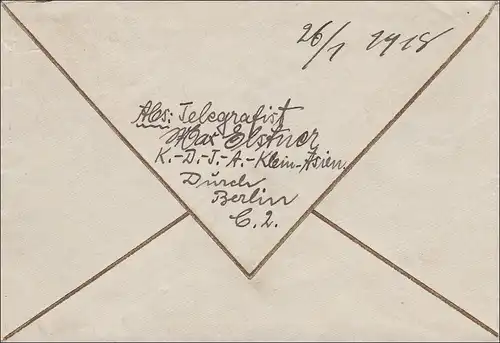 26/1 1918
Abs: Telegrafist
Max Elstner
K.-D.-T.-A.-Klein-Asien.
Durch
Berlin
C. 2.